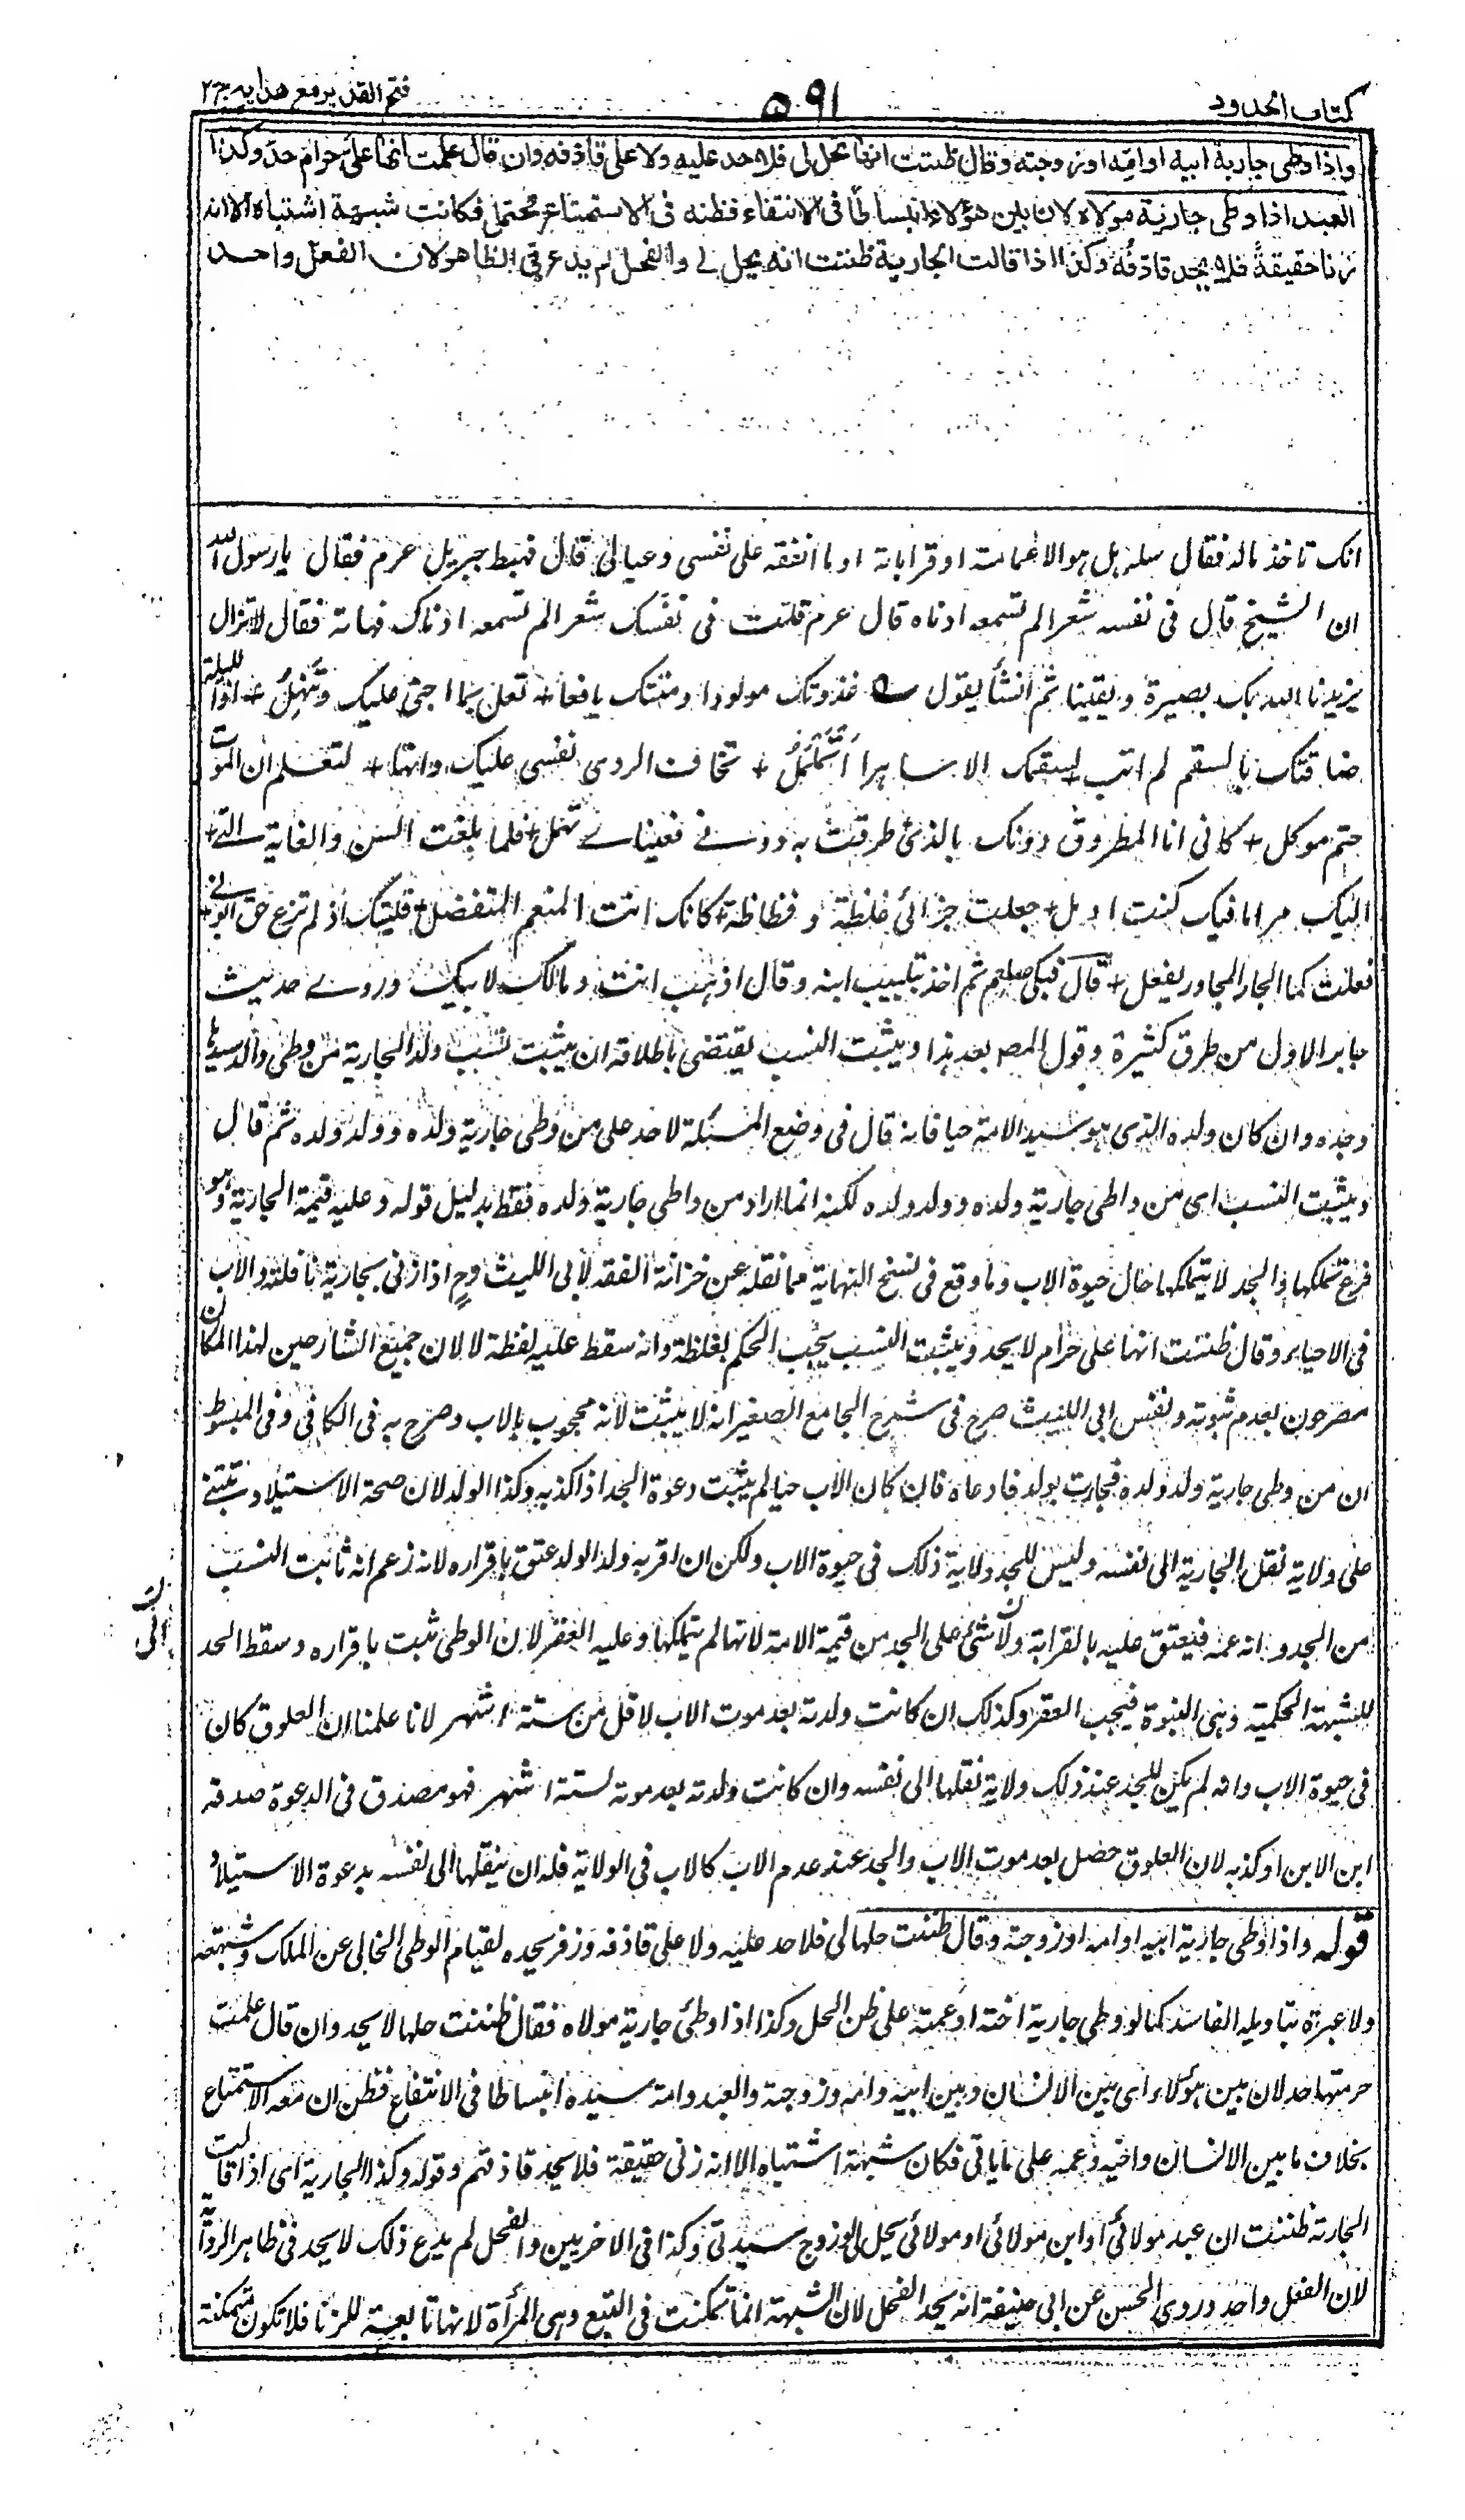 كتاب الحدود
٥٩١
فتح القدير مع هدايه ج٢
واذا وطى جارية ابيه او امّه او زوجته وقال ظننت انها تحل لى فلا حد عليه ولا على قاذفه وان قال علمت انها على حرام حدّ وكذا
العبد اذا وطى جارية مولاه لان بين هؤلاء انبساطا فى الانتفاع فظنه فى الاستمتاع محتمل فكانت شبهة اشتباه الا انه
زنا حقيقةً فلا يحد قاذفُه وكذا اذا قالت الجارية ظننت انه يحل لے والفحل لم يدع فى الظاهر لان الفعل واحد
انک تاخذ ماله فقال سله هل هو الا عماته او قراباته او ما انفقه على نفسى وعيالى قال فهبط جبريل عرم فقال يا رسول الله
ان الشيخ قال فى نفسه شعرا لم تسمعه اذناه قال عرم قلت فى نفسک شعرا لم تسمعه اذناک فهاته فقال لا تزال
يزيدنا الله بک بصيرة ويقينا ثم انشأ يقول غذوتک مولودا ومنتک يافعا + تعل بما اجنى عليک وتنهل + اذا ليلة
ضاقتک بالسقم لم ابت لسقمک الا ساهرا اتململ + تخاف الردى نفسى عليک وانها + لتعلم ان الموت
حتم موكل + كانى انا المطروق دونک بالذى طرقت به دونے فعيناے تهمل + فلما بلغت السن والغاية التے +
اليک مراما فيک كنت اومل + جعلت جزائى غلظة و فظاظة + كانک انت المنعم المتفضل + فليتک اذ لم ترع حق ابوتے +
فعلت كما الجار المجاور يفعل + قال فبكى صلعم ثم اخذ بتلبيب ابنه وقال اذهب انت ومالک لابيک وروے حديث
جابر الاول من طرق كثيرة وقول المص بعد هذا ويثبت النسب يقتضى باطلاقه ان يثبت نسب ولد الجارية من وطى والد سيدها
وجده وان كان ولده الذى هو سيد الامة حيا فانه قال فى وضع المسئلة لا حد على من وطى جارية ولده وولد ولده ثم قال
ويثبت النسب اى من واطى جارية ولده وولد ولده لكنه انما اراد من واطى جارية ولده فقط بدليل قوله وعليه قيمة الجارية وهو
فرع تملكها اذ الجد لا يتملكها حال حيوة الاب وما وقع فى نسخ النهاية مما نقله عن خزانة الفقه لابى الليث وح اذا زنى بجارية نافلته والاب
فى الاحياء وقال ظننت انها على حرام لا يحد ويثبت النسب يجب الحكم بغلطه وانه سقط عليه لفظة لا لان جميع الشارحين لهذا المكان
مصرحون بعدم ثبوته ونفس ابى الليث صرح فى شرح الجامع الصغير انه لا يثبت لانه محجوب بالاب وصرح به فى الكافى وفى المبسوط
ان من وطى جارية ولد ولده فجاءت بولد فادعاه فان كان الاب حيا لم يثبت دعوة الجد اذا كذبه وكذا الولد لان صحة الاستيلاد تبتنے
على ولاية نقل الجارية الى نفسه وليس للجد ولاية ذلک فى حيوة الاب ولكن ان اقر به ولد الولد عتق باقراره لانه زعم انه ثابت النسب
من الجد وانه عمه فيعتق عليه بالقرابة ولا شئ على الجد من قيمة الامة لانها لم يتملكها وعليه العقر لان الوطى ثبت باقراره وسقط الحد
للشبهة الحكمية وهى البنوة فيجب العقر وكذلک ان كانت ولدته بعد موت الاب لاقل من ستة اشهر لانا علمنا ان العلوق كان
فى حيوة الاب وانه لم يكن للجد عند ذلک ولاية نقلها الى نفسه وان كانت ولدته بعد موته لستة اشهر فهو مصدق فى الدعوة صدقه
ابن الابن او كذبه لان العلوق حصل بعد موت الاب والجد عند عدم الاب كالاب فى الولاية فله ان ينقلها الى نفسه بدعوة الاستيلاد
قوله واذا وطى جارية ابيه او امه او زوجته وقال ظننت حلها لى فلا حد عليه ولا على قاذفه وزفر يحده لقيام الوطى الخالى عن الملک وشبهته
ولا عبرة بتاويله الفاسد كما لو وطى جارية اخته او عمته على ظن الحل وكذا اذا وطى جارية مولاه فقال ظننت حلها لا يحد وان قال علمت
حرمتها حد لان بين هؤلاء اى بين الانسان وبين ابيه وامه وزوجته والعبد وامة سيده انبساطا فى الانتفاع فظن ان معه الاستمتاع
بخلاف ما بين الانسان واخيه وعمه على ما ياتى فكان شبهة اشتباه الا انه زنى حقيقة فلا يحد قاذفهم وقوله وكذا الجارية اى اذا قالت
الجارية ظننت ان عبد مولائى او ابن مولائى او مولائى يحل لى او زوج سيدتى وكذا فى الاخريين والفحل لم يدع ذلک لا يحد فى ظاهر الرواية
لان الفعل واحد وروى الحسن عن ابى حنيفة انه يحد الفحل لان الشبهة انما تمكنت فى التبع وهى المرأة لانها تابعة للزنا فلا تكون متمكنة